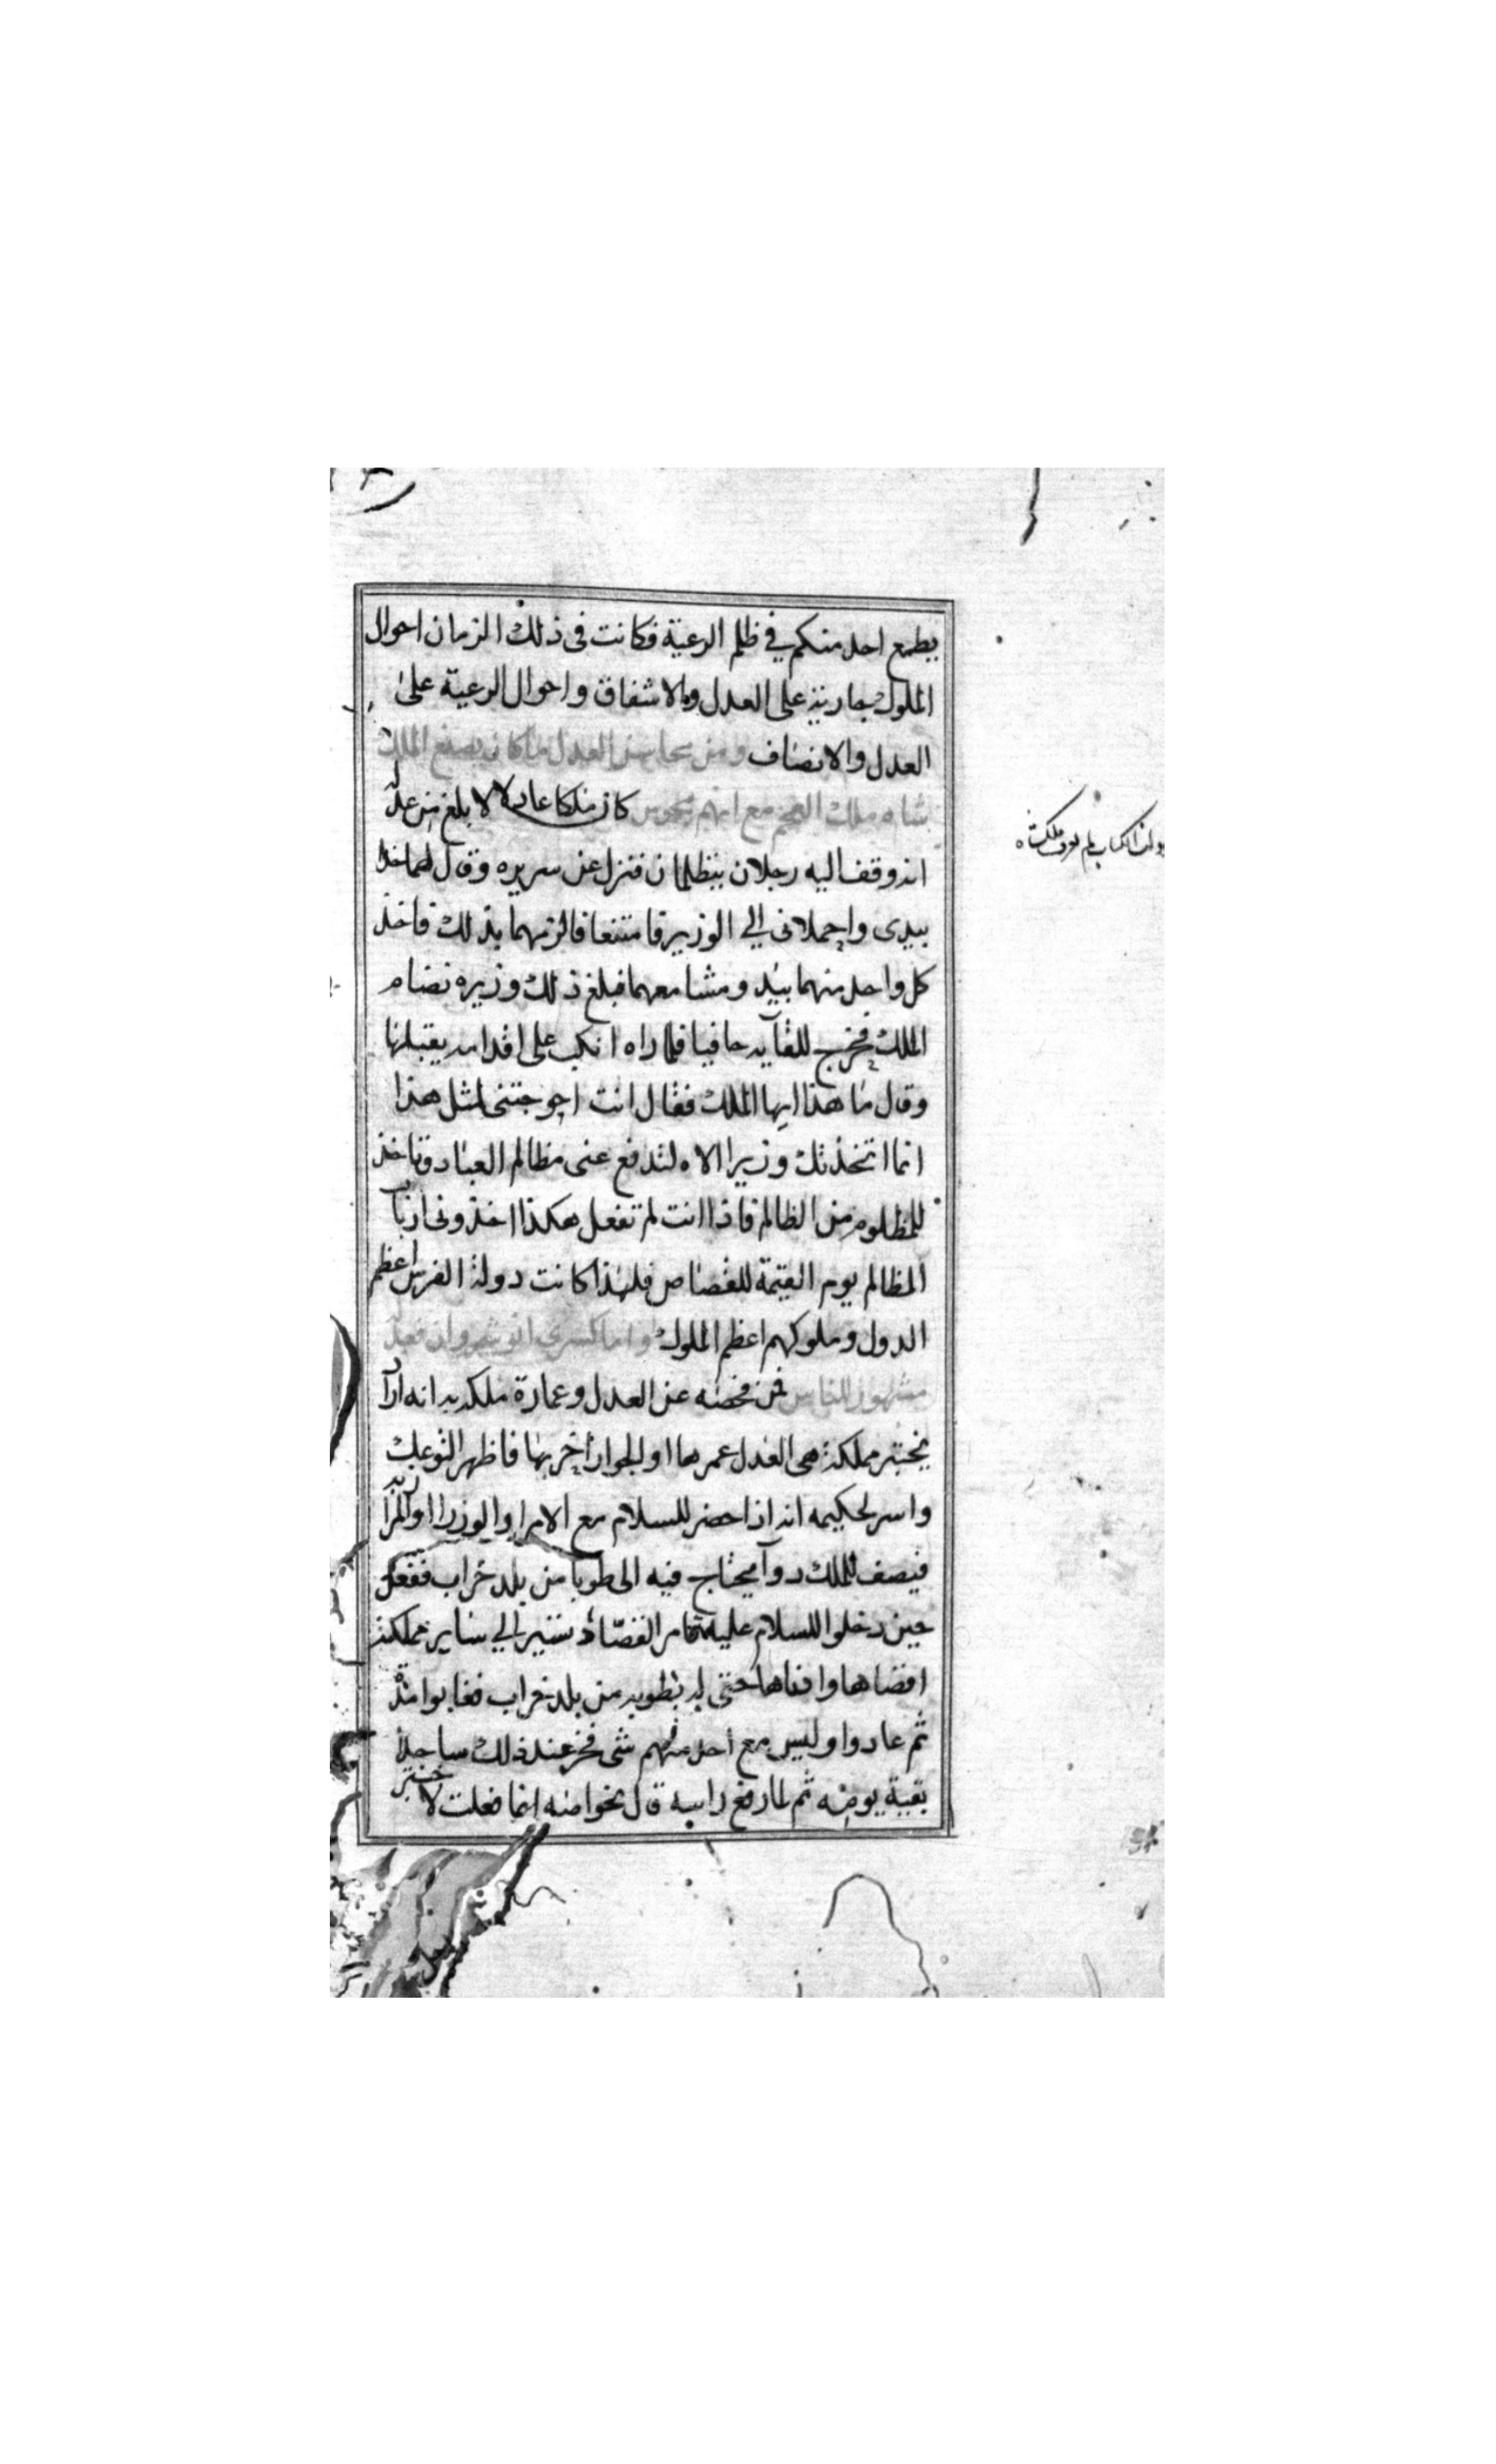 يطمع احد منكم في ظلم الرعية فكانت فى ذلك الزمان احوال
الملوك جارية على العدل والاشفاق واحوال الرعية على
العدل والانصاف ومن محاسن العدل ما كان يصنع الملك
شاه ملك العجم مع انهم مجوس كان ملكا عادلا لا بلغ من عدله
انه وقف اليه رجلان يتظلمان فنزل عن سريره وقال لهما خذا
بيدى واحملانى الي الوزير فامتنعا فالزمهما بذلك فاخذ
كل واحد منهما بيد ومشا معهما فبلغ ذلك وزيره نضام
الملك فخرج للقآيه حافيا فلما راه انكب على اقدامه يقبلها
وقال ما هذا ايها الملك فقال انت احوجتنى لمثل هذا
انما اتخذتك وزيرا الا لتدفع عنى مظالم العباد وتاخذ
للمظلوم من الظالم فاذا انت لم تفعل هكذا اخذونى ارباب
المظالم يوم القيمة للقصاص فلهذا كانت دولة الفرس اعظم
الدول وملوكهم اعظم الملوك واما كسرى انوشروان فعدله
مشهور للناس فمن فحصه عن العدل وعمارة ملكه به انه اراد
يختبر مملكته هى العدل عمرها او الجوار اخربها فاظهر التوعك
واسر لحكيمه انه اذا حضر للسلام مع الامرا والوزرا والمرازبه
فيصف للملك دوآ يحتاج فيه الى طوبا من بلد خراب ففعل
حين دخلوا للسلام عليه فامر القصاد تسير الي ساير مملكته
اقصاها وادناها حتى بطوبه من بلد خراب فغابوا مدة
ثم عادوا وليس مع احد منهم شى فخر عند ذلك ساجدا
بقية يومه ثم لما رفع راسه قال لخواصه انما فعلت لاختبر